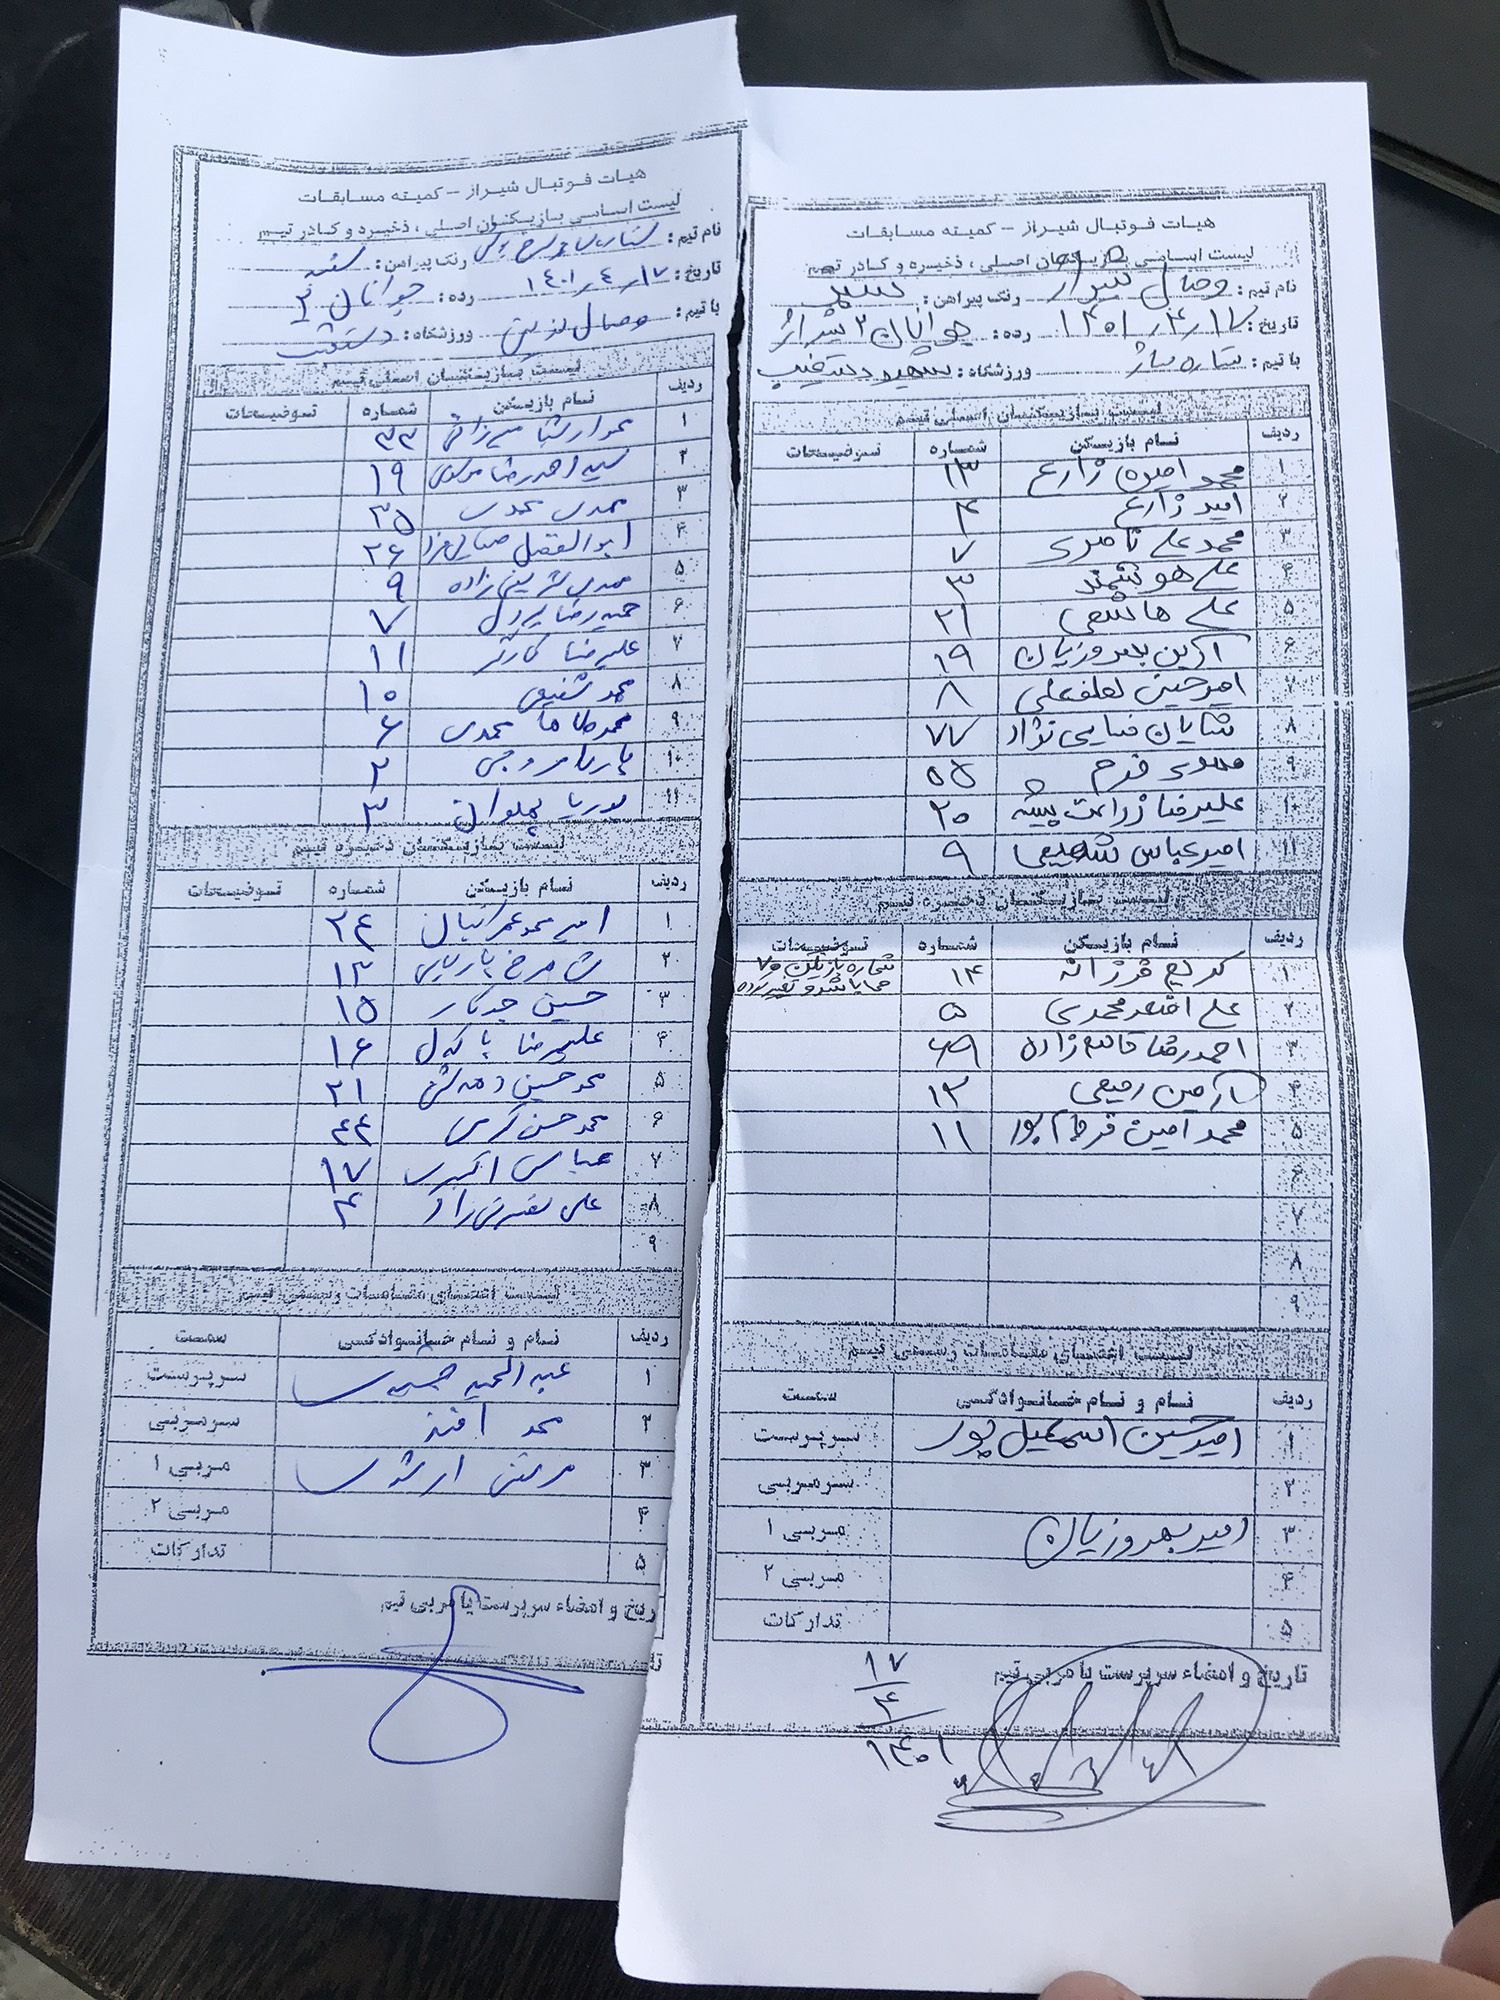 هیات فوتبال شیراز - کمیته مسابقات
لیست اسامی بازیکنان اصلی ، ذخیره و کادر تیم
نام تیم : وصال شیراز رنگ پیراهن :
تاریخ : ۱۴۰۱/۴/۱۷ رده : جوانان ۲ شیراز
با تیم : ستاره ساز ورزشگاه : شهید دستغیب
لیست بازیکنان اصلی تیم
ردیف نام بازیکن شماره توضیحات
۱ محمد امین زارع ۱۳
۲ امید زارع ۴
۳ محمد علی ناصری ۷
۴ علی هوشمند ۳
۵ علی هاشمی ۲۱
۶ آرین بهروزیان ۱۹
۷ امیرحسین لطفعلی ۸
۸ شایان ضیایی نژاد ۷۷
۹ مهدی فرح ۵۵
۱۰ علیرضا زراعت پیشه ۲۰
۱۱ امیرعباس شفیعی ۹
لیست بازیکنان ذخیره تیم
ردیف نام بازیکن شماره توضیحات
۱ کریم فرزانه ۱۴ شماره بازیکن ۷۰
۲ علی ۵
۳ احمدرضا قاسم زاده ۶۹
۴ آرمین رفیعی ۱۲
۵ محمد امین ۱۱
۶
۷
۸
۹
لیست اعضای مقامات رسمی تیم
ردیف نام و نام خانوادگی سمت
۱ امیرحسین اسمعیل پور سرپرست
۲ سرمربی
۳ امیر بهروزیان مربی ۱
۴ مربی ۲
۵ تدارکات
تاریخ و امضاء سرپرست یا مربی تیم
۱۷
۴
۱۴۰۱
هیات فوتبال شیراز - کمیته مسابقات
لیست اسامی بازیکنان اصلی ، ذخیره و کادر تیم
نام تیم : رنگ پیراهن : سفید
تاریخ : ۱۴۰۱/۴/۱۷ رده : جوانان ۲
با تیم : وصال ورزشگاه : دستغیب
لیست بازیکنان اصلی تیم
ردیف نام بازیکن شماره توضیحات
۱ ۳۳
۲ سید احمدرضا موسوی ۱۹
۳ مهدی محمدی ۳۵
۴ ابوالفضل ۲۶
۵ مهدی زاده ۹
۶ حمیدرضا ۷
۷ علیرضا کارگر ۱۱
۸ محمد شفیعی ۱۰
۹ محمدطاها محمدی ۶
۱۰ پارسا ۲
۱۱ پوریا پهلوان ۳
لیست بازیکنان ذخیره تیم
ردیف نام بازیکن شماره توضیحات
۱ ۲۴
۲ ۱۳
۳ حسین ۱۵
۴ علیرضا ۱۶
۵ محمدحسین ۲۱
۶ محمد حسن کرمی ۴۴
۷ عباس اکبری ۱۷
۸ علی ۴
۹
لیست اعضای مقامات رسمی تیم
ردیف نام و نام خانوادگی سمت
۱ عبدالحمید سرپرست
۲ محمد سرمربی
۳ مربی ۱
۴ مربی ۲
۵ تدارکات
ریخ و امضاء سرپرست یا مربی تیم
تا